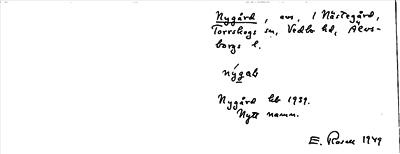 Nygård, avs. / Nästegård,
Torrskogs sn, Vedbo hd, Älvs-
borgs l.
nýgaḷ
Nygård hb 1939.
Nytt namn.
E. Rosell 1949